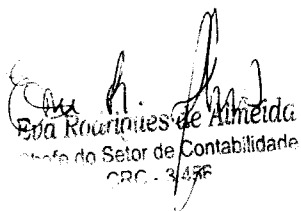 Eva Rodrigues de Almeida
Chefe do Setor de Contabilidade
CRC - 3.456